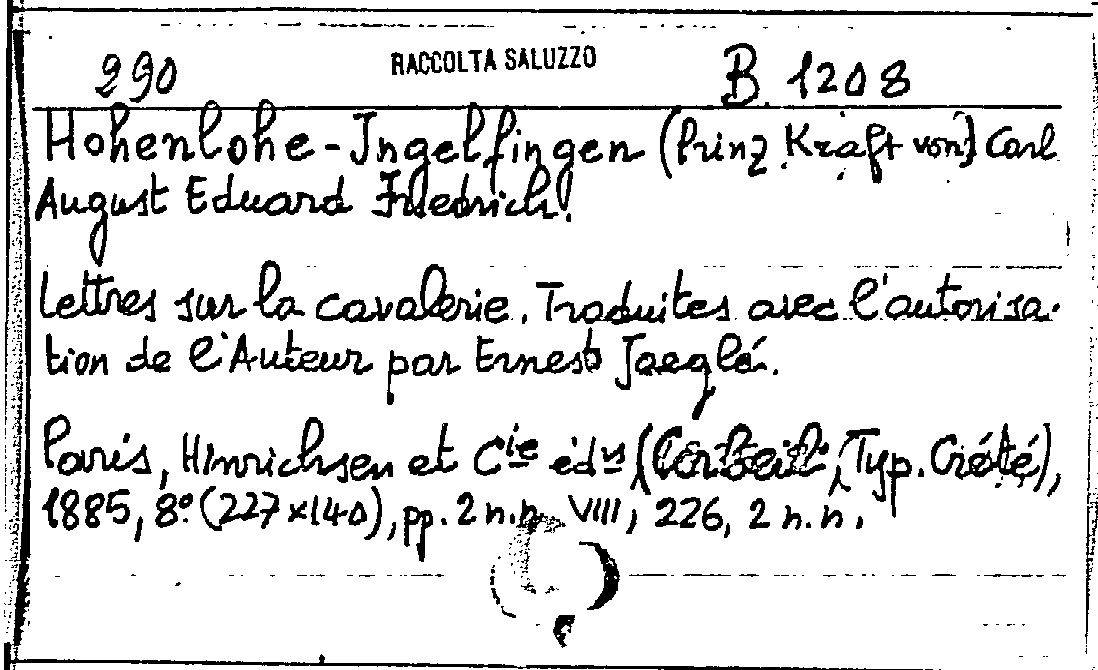 290 RACCOLTA SALUZZO B. 1208
Hohenlohe-Ingelfingen (Prinz Kraft von) Carl
August Eduard Friedrich.
Lettres sur la cavalerie. Traduites avec l'autorisa-
tion de l'Auteur par Ernest Jaeglé.
Paris, Hinrichsen et Cie édrs (Corbeil, Typ. Crété),
1885, 8° (227x140), pp. 2 n.n. VIII, 226, 2 n.n.